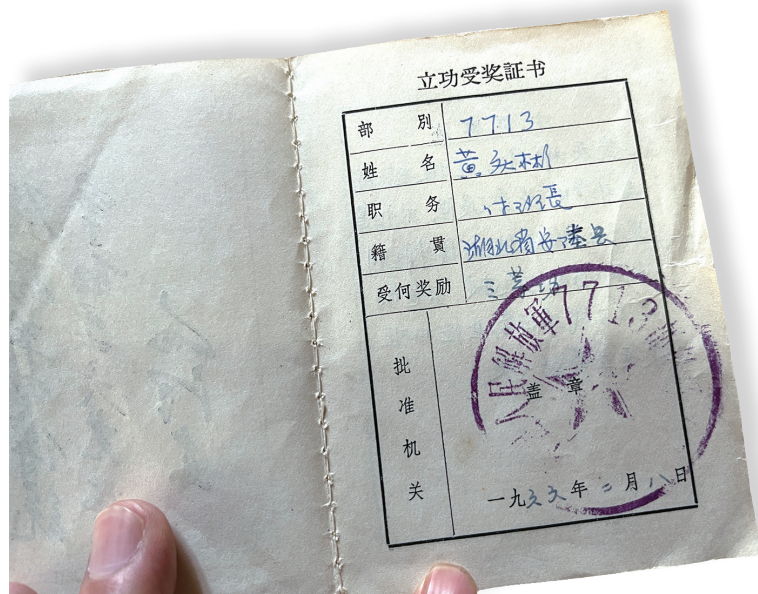 立功受奖証书
部别 7713
姓名 黄 彬
职务 付班長
籍貫 湖北省安陆县
受何奖励 三等功
批准机关
人民解放軍7713
盖章
一九 年二月八日